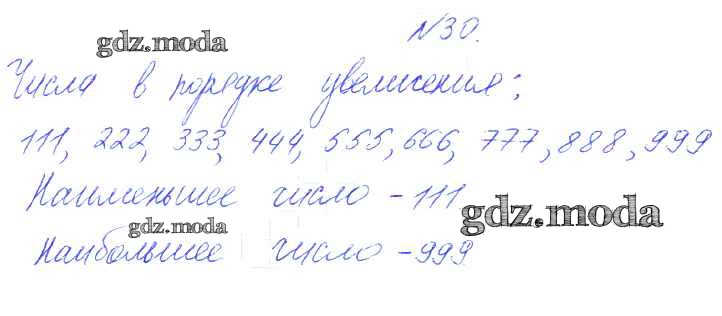 N30.
gdz.moda
Числа в порядке увеличения:
111, 222, 333, 444, 555, 666, 777, 888, 999
Наименьшее число - 111
gdz.moda
gdz.moda
Наибольшее число - 999